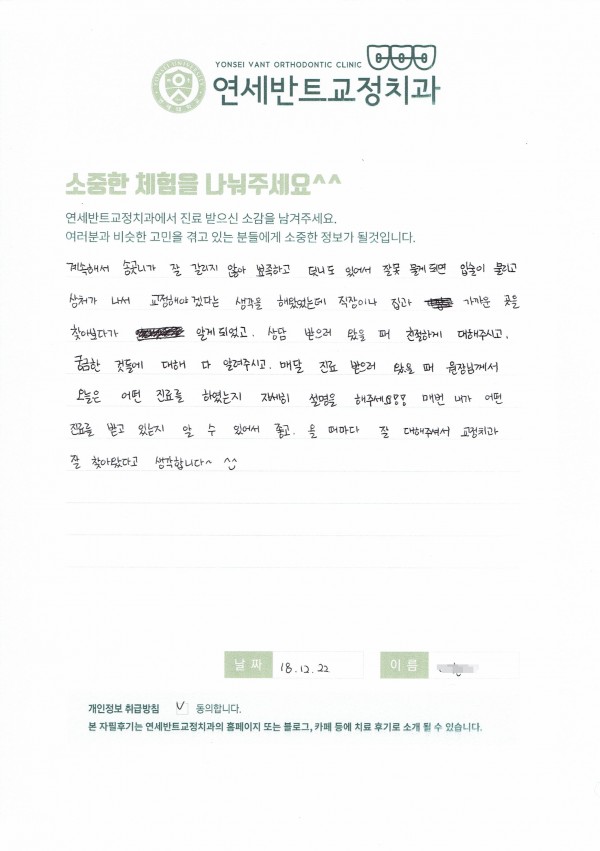 YONSEI VANT ORTHODONTIC CLINIC
연세반트교정치과
소중한 체험을 나눠주세요^^
연세반트교정치과에서 진료 받으신 소감을 남겨주세요.
여러분과 비슷한 고민을 겪고 있는 분들에게 소중한 정보가 될것입니다.
계속해서 송곳니가 잘 갈리지 않아 뾰족하고 덧니도 있어서 잘못 물게되면 입술이 물리고
상처가 나서 교정해야겠다는 생각을 해왔었는데 직장이나 집과 가까운 곳을
찾아보다가 알게되었고. 상담 받으러 왔을 때 친절하게 대해주시고,
궁금한 것들에 대해 다 알려주시고. 매달 진료 받으러 왔을 때 원장님께서
오늘은 어떤 진료를 하였는지 자세히 설명을 해주세요!! 매번 내가 어떤
진료를 받고 있는지 알 수 있어서 좋고. 올 때마다 잘 대해주셔서 교정치과
잘 찾아왔다고 생각합니다~ ^^
날 짜 18.12.22 이 름
개인정보 취급방침 V 동의합니다.
본 자필후기는 연세반트교정치과의 홈페이지 또는 블로그, 카페 등에 치료 후기로 소개 될 수 있습니다.